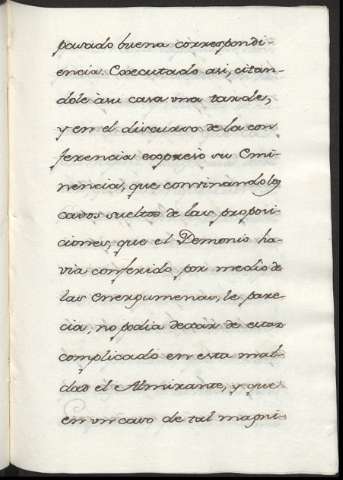 pasado buena correspondi-
encia. Executado asi, citan-
dole à su casa una tarde,
y en el discurso de la con
ferencia expresò su Emi-
nencia, que convinando los
cavos sueltos de las proposi-
ciones, que el Demonio ha-
via conferido por medio de
las Energumenas, le pare-
cia, no podia dexar de estar
complicado en esta mal-
dad el Almirante, y que
en un cavo de tal magni-